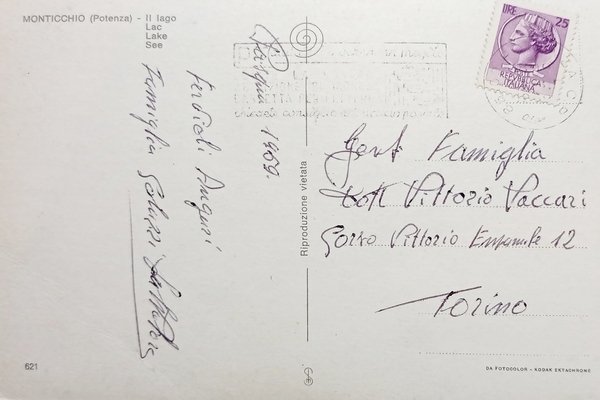 MONTICCHIO (Potenza) - Il lago
Lac
Lake
See
Pasqua 1969.
Cordiali Auguri
Famiglia
Riproduzione vietata
LIRE 25
REPUBBLICA
ITALIANA
Gent Famiglia
Dott Vittorio Vaccari
Corso Vittorio Emanuele 12
Torino
621
DA FOTOCOLOR - KODAK EKTACHROME